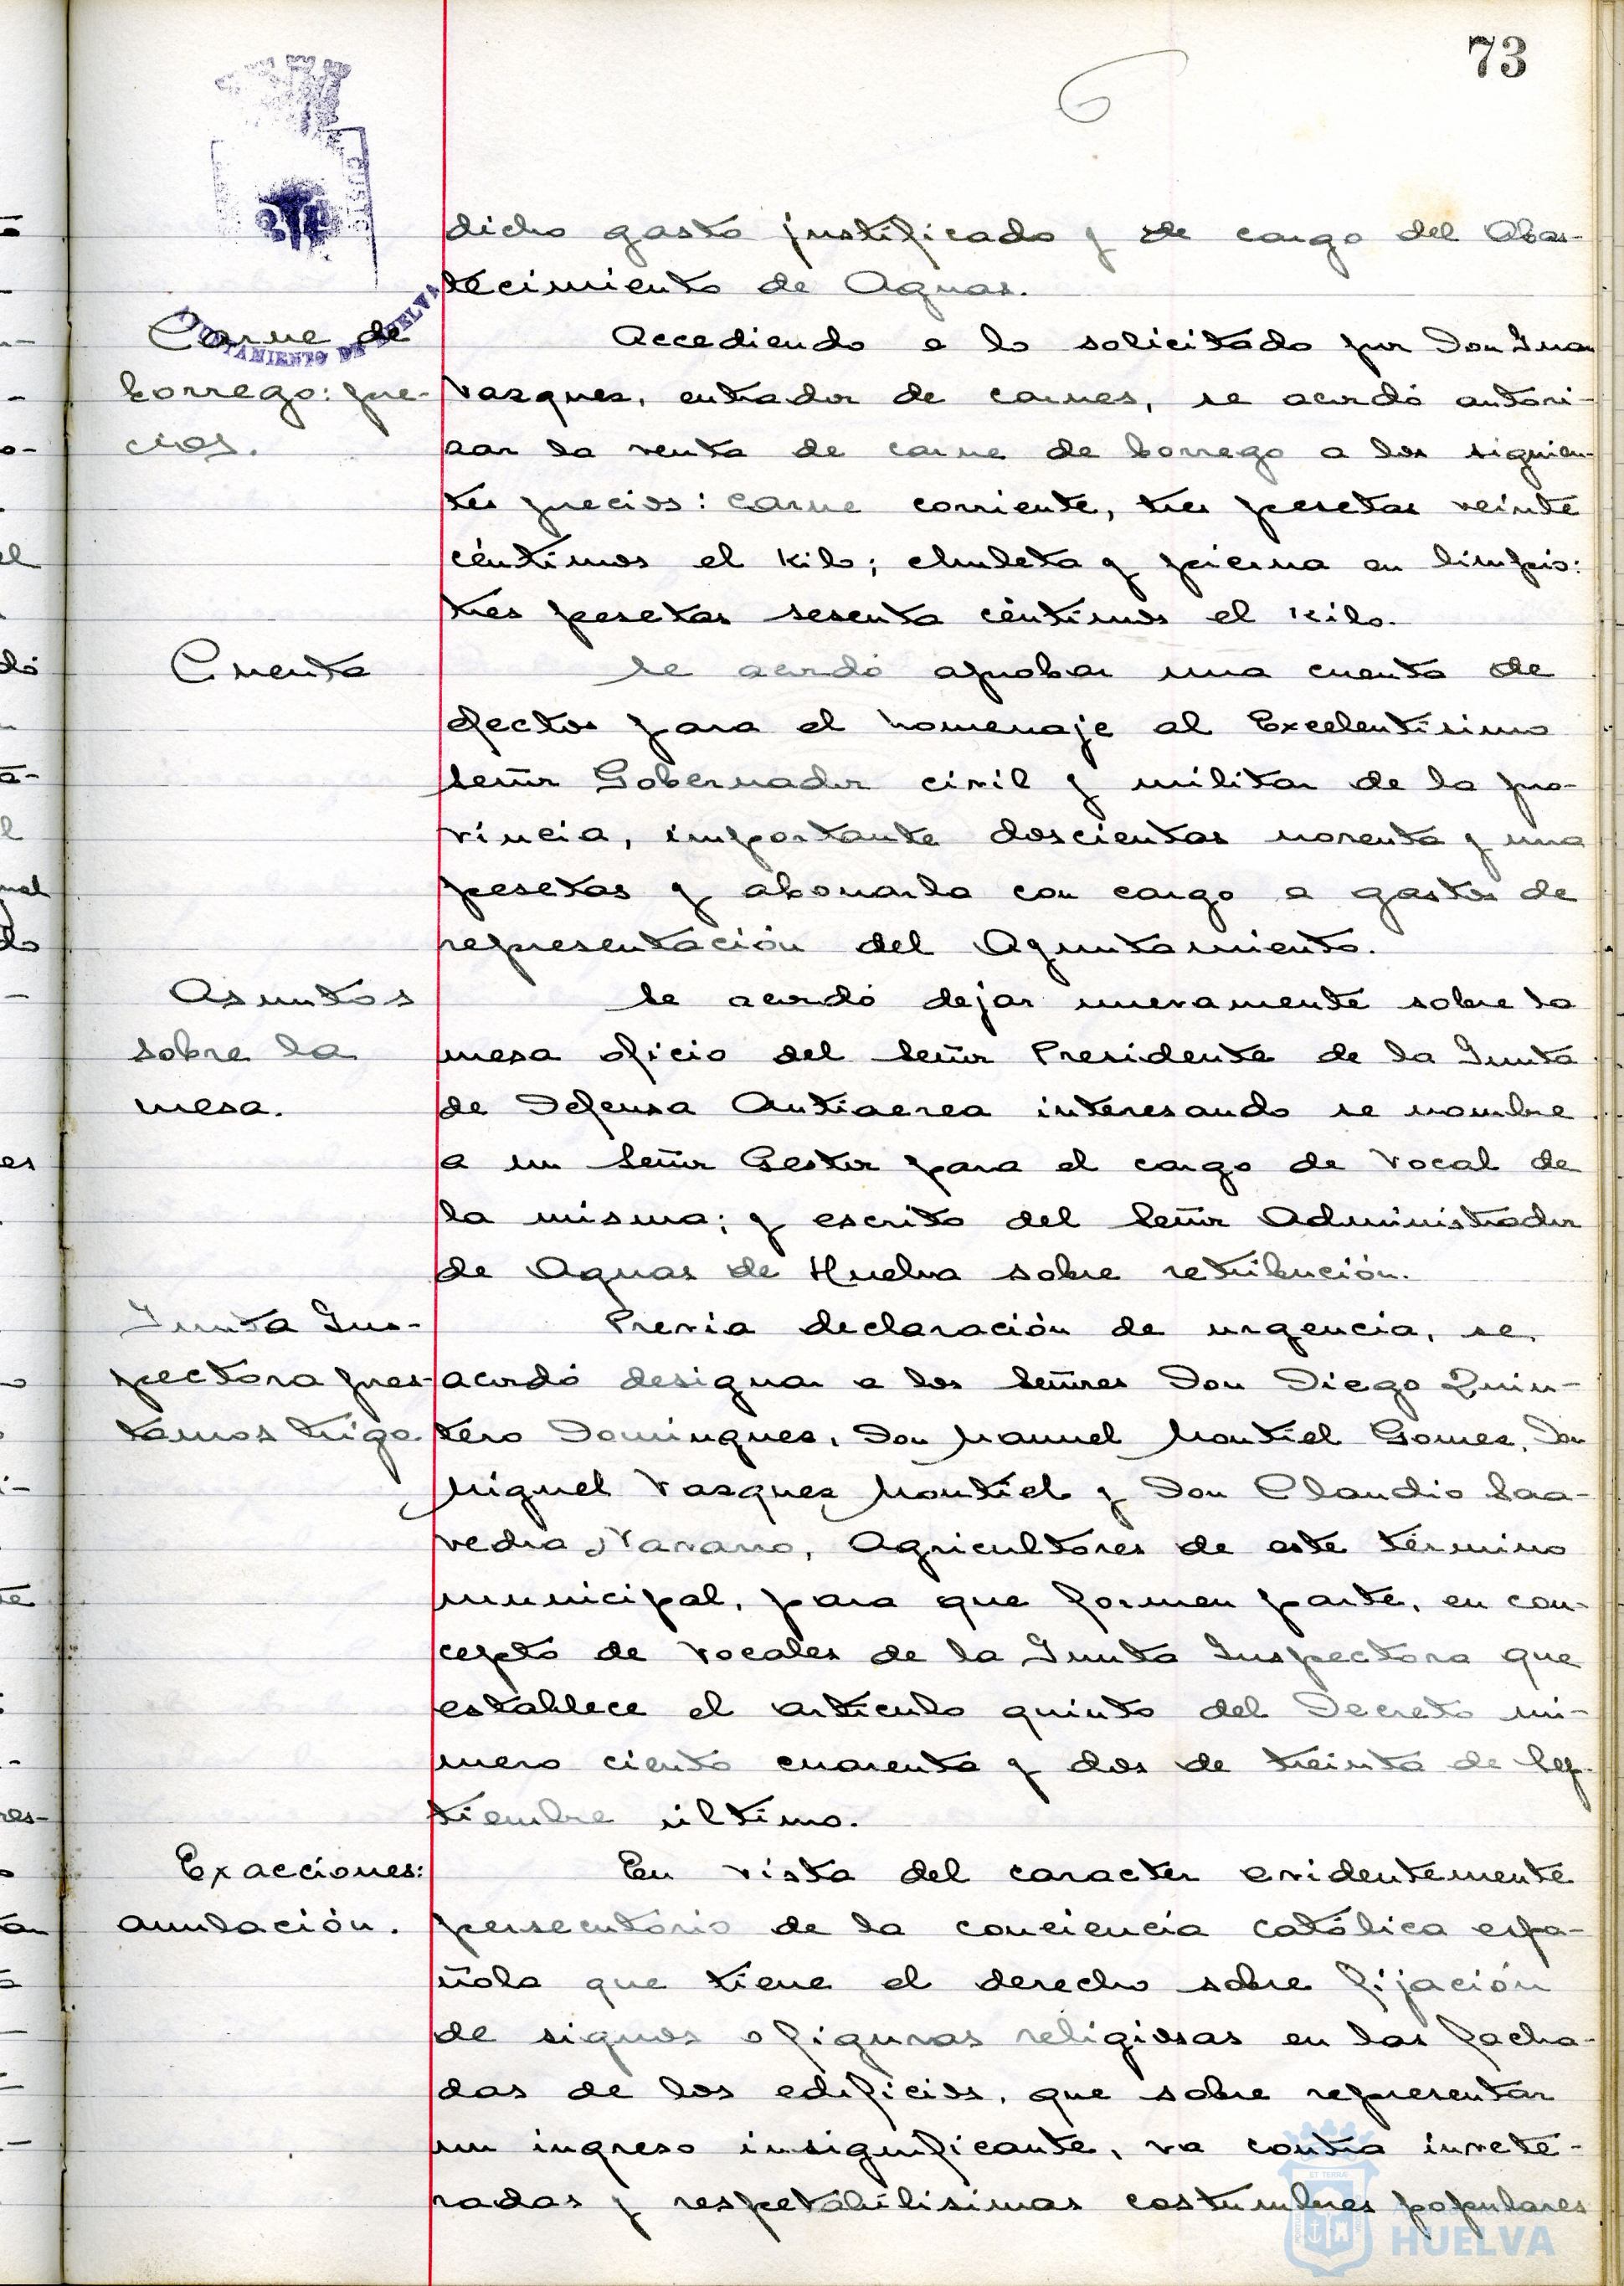 73
dicho gasto justificado y de cargo del Abas-
tecimiento de Aguas.
Carne de
borrego: pre-
cios.
Accediendo a lo solicitado por Don Juan
Vazquez, entrador de carnes, se acordó autori-
zar la venta de carne de borrego a los siguien-
tes precios: carne corriente, tres pesetas veinte
céntimos el kilo; chuleta y pierna en limpio:
tres pesetas sesenta céntimos el kilo.
Cuenta
Se acordó aprobar una cuenta de
efectos para el homenaje al Excelentísimo
Señor Gobernador civil y militar de la pro-
vincia, importante doscientas noventa y una
pesetas y abonarla con cargo a gastos de
representación del Ayuntamiento.
Asuntos
sobre la
mesa.
Se acordó dejar nuevamente sobre la
mesa oficio del Señor Presidente de la Junta
de Defensa Antiaerea interesando se nombre
a un Señor Gestor para el cargo de Vocal de
la misma; y escrito del Señor Administrador
de Aguas de Huelva sobre retribución.
Junta Ins-
pectora pres-
tamos trigo.
Previa declaración de urgencia, se
acordó designar a los Señores Don Diego Quin-
tero Dominguez, Don Manuel Montiel Gomez, Don
Miguel Vazquez Montiel y Don Claudio Saa-
vedra Navarro, Agricultores de este término
municipal, para que formen parte, en con-
cepto de Vocales de la Junta Inspectora que
establece el artículo quinto del Decreto nú-
mero ciento cuarenta y dos de treinta de Sep-
tiembre último.
Exacciones:
anulación.
En vista del caracter evidentemente
persecutorio de la conciencia católica espa-
ñola que tiene el derecho sobre fijación
de signos o figuras religiosas en las facha-
das de los edificios, que sobre representar
un ingreso insignificante, va contra invete-
radas y respetabilísimas costumbres populares
AYUNTAMIENTO DE HUELVA
HUELVA